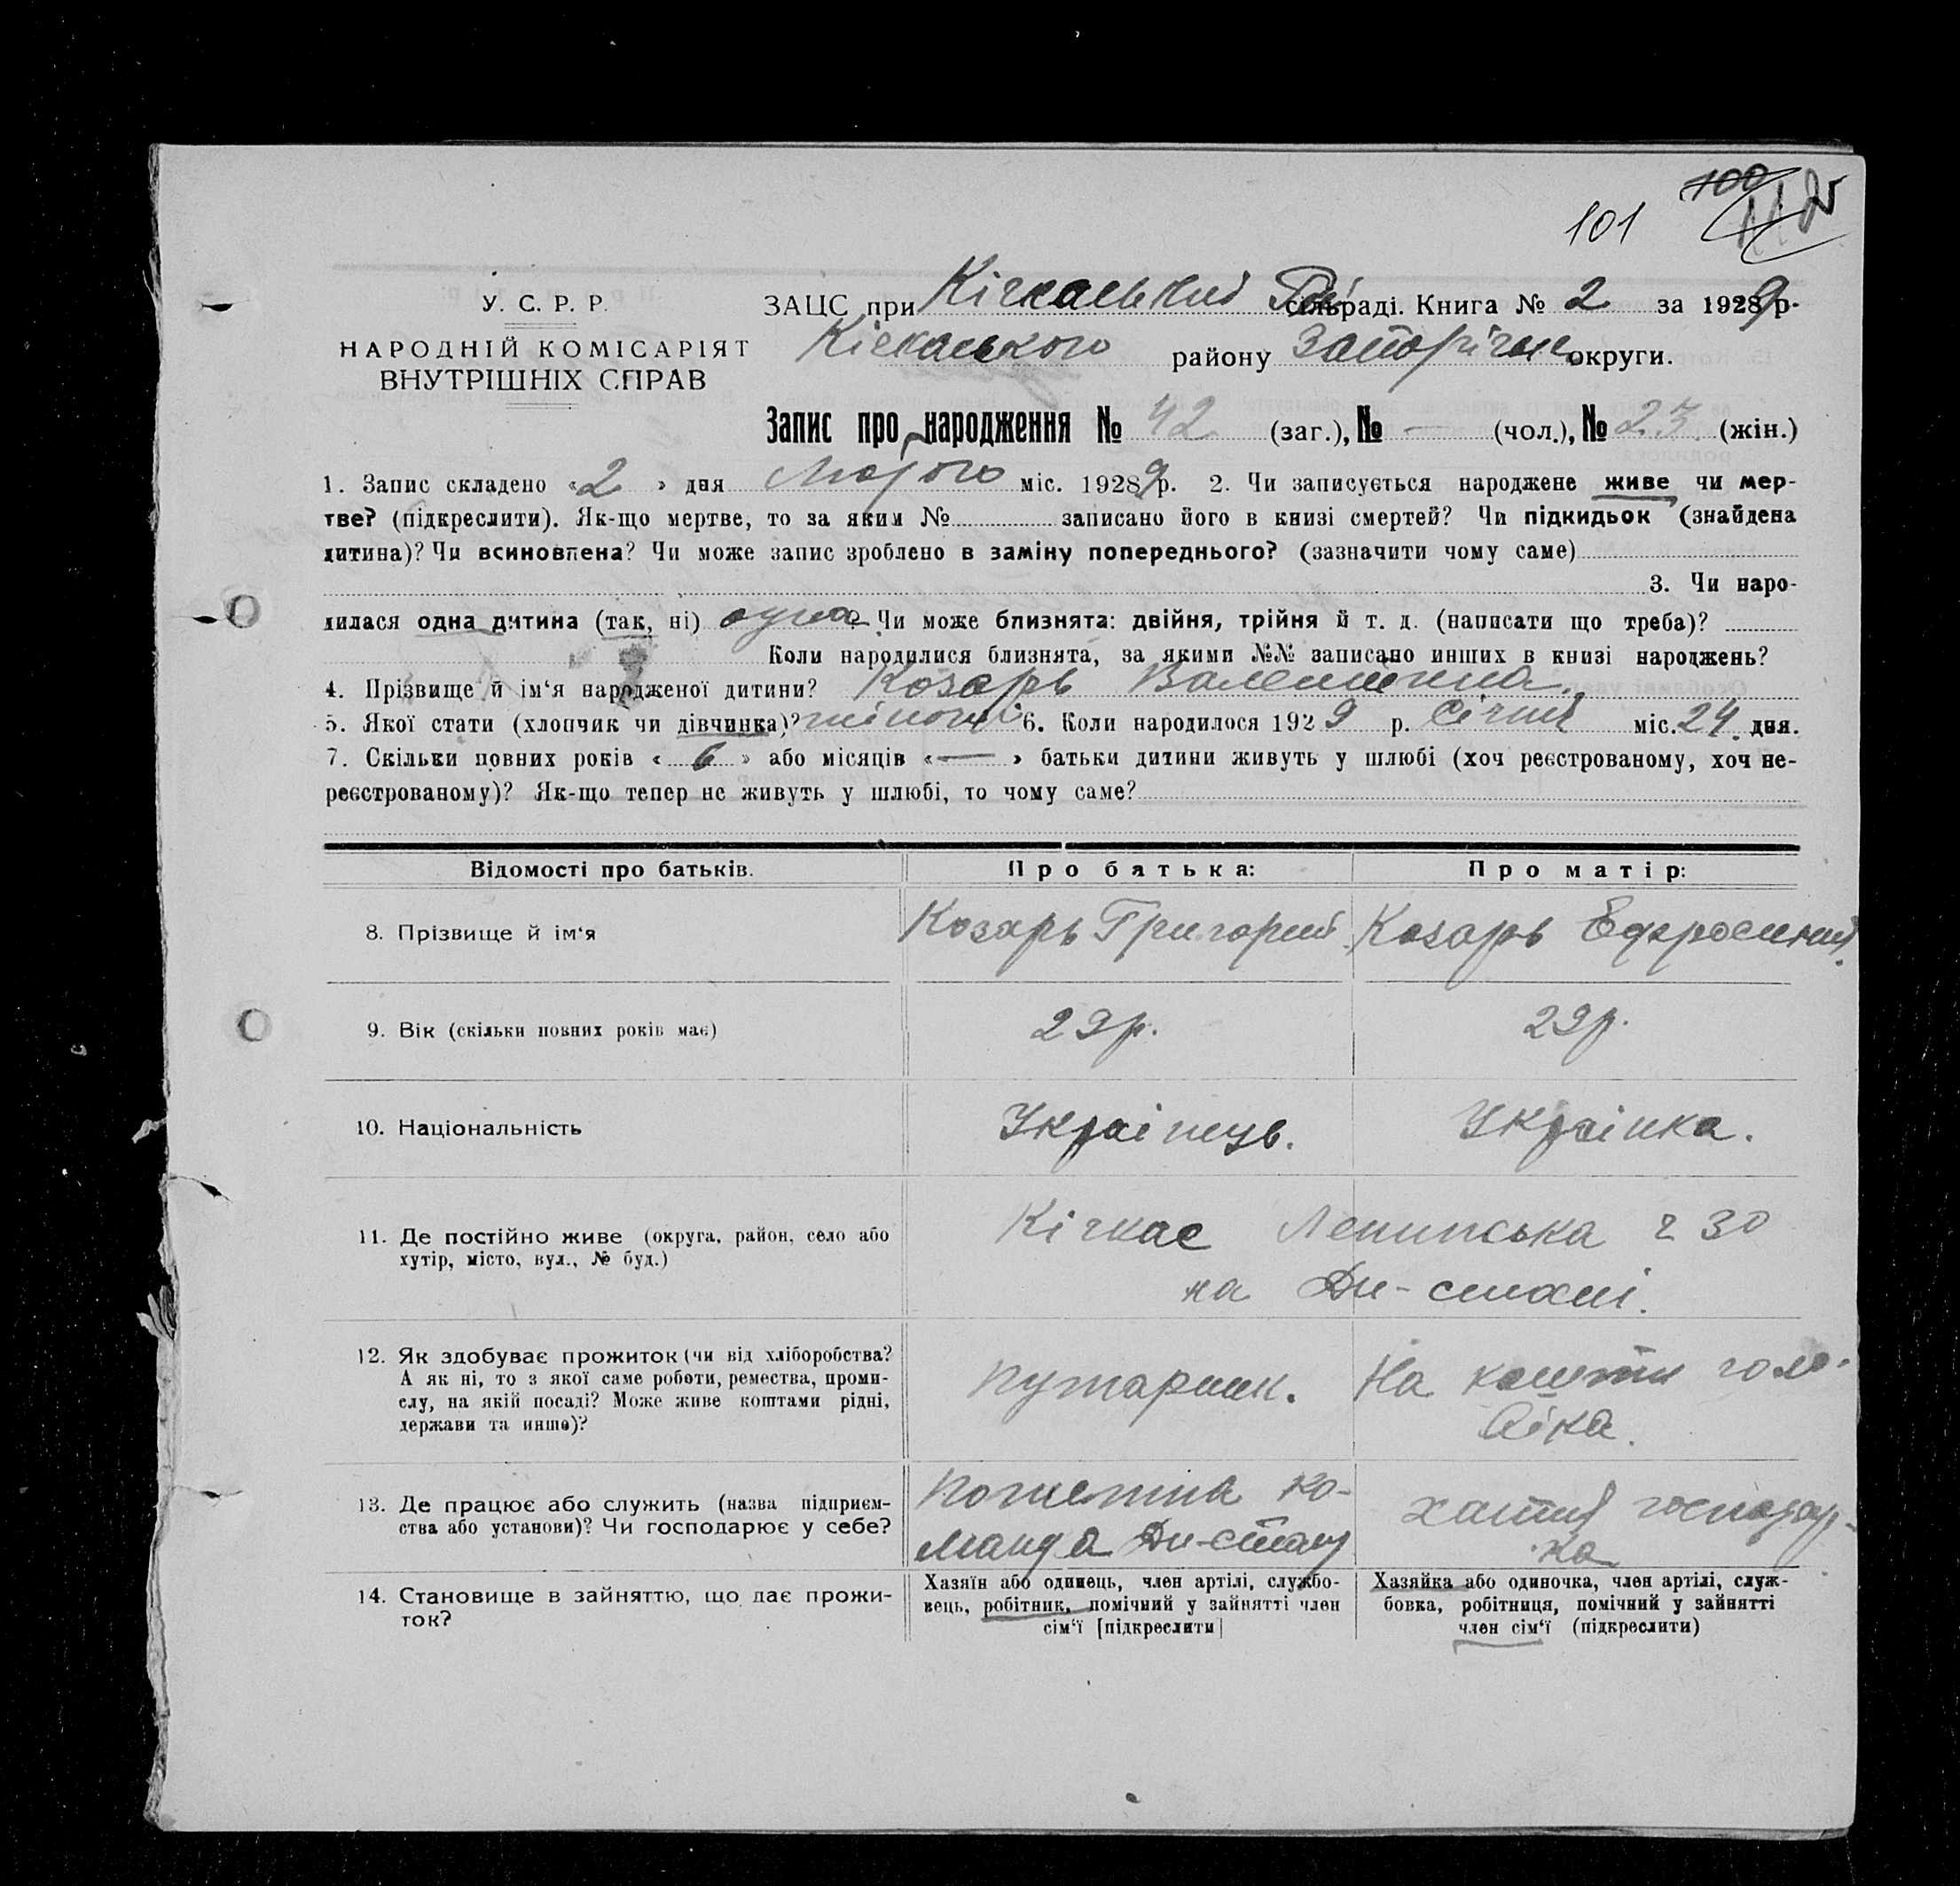 101 100 112
У. С. Р. Р.
НАРОДНІЙ КОМІСАРІЯТ
ВНУТРІШНІХ СПРАВ
ЗАЦС при Кічкаський сільраді. Книга № 2 за 1929 р.
Кічкаського району Запоріжж округи.
Запис про народження № 42 (заг.), № — (чол.), № 23 (жін.)
1. Запис складено «2» дня Лютого міс. 1929 р. 2. Чи записується народжене живе чи мер-
тве? (підкреслити). Як-що мертве, то за яким № записано його в книзі смертей? Чи підкидьок (знайдена
дитина)? Чи всиновлена? Чи може запис зроблено в заміну попереднього? (зазначити чому саме)
3. Чи наро-
дилася одна дитина (так, ні) одна? Чи може близнята: двійня, трійня й т. д. (написати що треба)?
Коли народилися близнята, за якими №№ записано инших в книзі народжень?
4. Прізвище й ім‘я народженої дитини? Козарь Валентина.
5. Якої стати (хлопчик чи дівчинка)? жіночі 6. Коли народилося 1929 р. Січня міс. 24 дня.
7. Скільки повних років «6» або місяців «—» батьки дитини живуть у шлюбі (хоч реєстрованому, хоч не-
реєстрованому)? Як-що тепер не живуть у шлюбі, то чому саме?
Відомості про батьків. Про батька: Про матір:
8. Прізвище й ім‘я Козарь Григорий Козарь Ефросиния.
9. Вік (скільки повних років має) 29 р. 29 р.
10. Національність Українець. Українка.
11. Де постійно живе (округа, район, село або
хутір, місто, вул., № буд.)
Кічкас Ленинська ч 30
на Дн-стані.
12. Як здобуває прожиток (чи від хліборобства?
А як ні, то з якої саме роботи, ремества, проми-
слу, на якій посаді? Може живе коштами рідні,
держави та инше)?
На кошти чоло-
віка.
13. Де працює або служить (назва підприєм-
ства або установи)? Чи господарює у себе?
Пожетна ко-
манда Дн-стану
хатня господар-
ка
14. Становище в зайняттю, що дає прожи-
ток?
Хазяїн або одинець, член артілі, службо-
вець, робітник, помічний у зайнятті член
сім‘ї [підкреслити]
Хазяйка або одиночка, член артілі, служ-
бовка, робітниця, помічний у зайнятті
член сім‘ї (підкреслити)